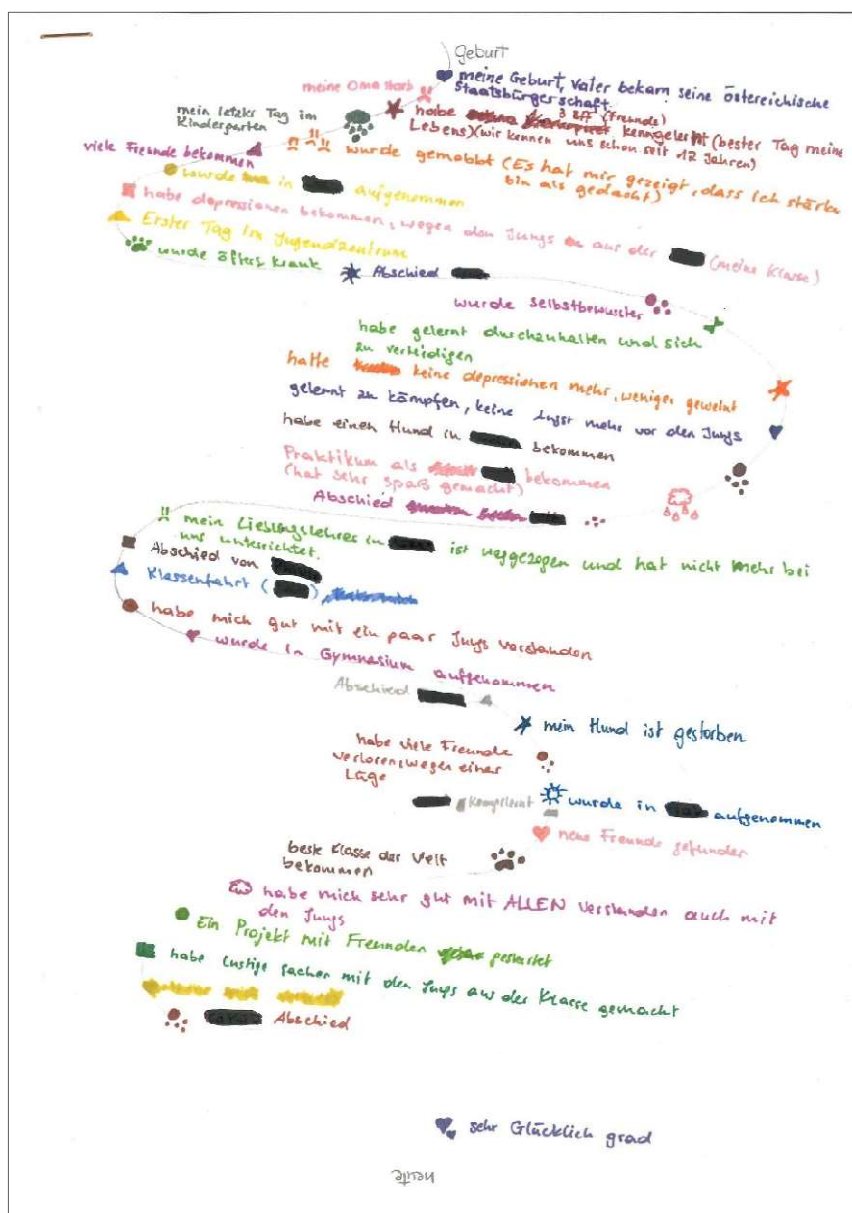 Geburt
meine Geburt, Vater bekam seine östereichische
Staatsbürgerschaft
meine Oma starb
3 BFF (Freunde)
habe kenngelernt (bester Tag meine
Lebens) (wir kennen uns schon seit 12 Jahren)
mein letzter Tag im
Kindergarten
wurde gemobbt (Es hat mir gezeigt, dass ich stärke
bin als gedacht)
viele Freunde bekommen
wurde in aufgenommen
habe depressionen bekommen, wegen den Jungs aus der (meine Klasse)
Erster Tag im Jugendzentrum
wurde öfters krank
Abschied
wurde selbstbewusster
habe gelernt durchzuhalten und sich
zu verteidigen
hatte keine depressionen mehr, weniger geweint
gelernt zu kämpfen, keine Angst mehr vor den Jungs
habe einen Hund in bekommen
Praktikum als bekommen
(hat sehr spaß gemacht)
Abschied
mein Lieblingslehrer in ist weggezogen und hat nicht mehr bei
uns unterrichtet.
Abschied von
Klassenfahrt ( )
habe mich gut mit ein paar Jungs verstanden
wurde in Gymnasium aufgenommen
Abschied
mein Hund ist gestorben
habe viele Freunde
verloren, wegen einer
Lüge
wurde in aufgenommen
neue Freunde gefunden
beste Klasse der Welt
bekommen
habe mich sehr gut mit ALLEN verstanden auch mit
den Jungs
Ein Projekt mit Freunden gestartet
habe lustige sachen mit den Jungs aus der Klasse gemacht
Abschied
sehr Glücklich grad
heute